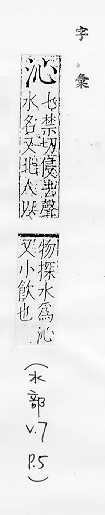 字彙
沁
七禁切侵去聲
水名又北人以
物探水爲沁
又小飲也
(水部
V.7
P.5)